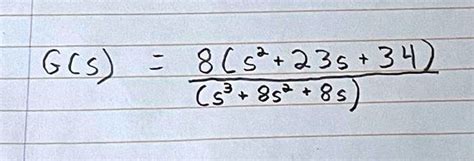 G(s) = 8(s² + 23s + 34)
(s³ + 8s² + 8s)